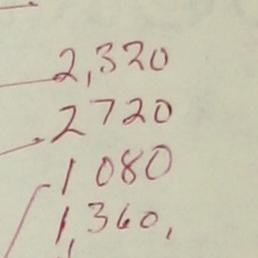 2,320
2720
1080
1,360,